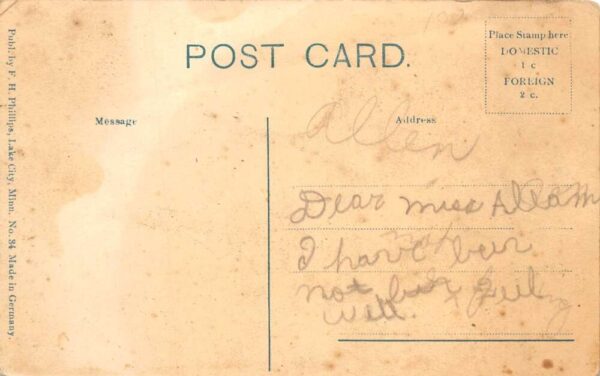 POST CARD.
Place Stamp here
DOMESTIC
1 c
FOREIGN
2 c.
Message
Address
Allen
Dear miss
I have been
not feeling
well.
Publ. by F. H. Phillips, Lake City, Minn. No. 84 Made in Germany.